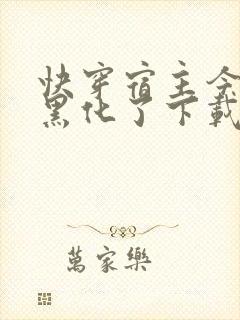 快穿宿主今
黑化了下載
萬家樂